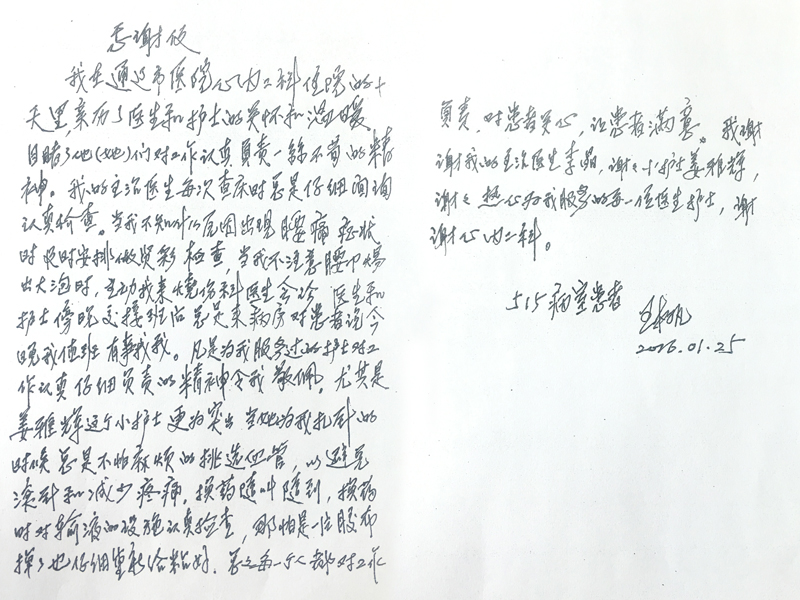 感谢信
我在通辽市医院心内二科住院的十
天里亲历了医生和护士的关怀和温暖
目睹了他(她)们对工作认真负责一丝不苟的精
神。我的主治医生每次查床时总是仔细询问
认真检查。当我不知什么原因出现腰痛症状
时及时安排做贤彩检查,当我不注意腰巾烫
出大泡时,主动找来烧伤科医生会诊 医生和
护士傍晚交接班后总是来病房对患者说今
晚我值班有事找我。凡是为我服务过的护士对工
作认真仔细负责的精神令我敬佩。尤其是
姜雅辉这个小护士更为突出当她为我扎针的
时候总是不怕麻烦的挑选血管,以避免
滚针和减少疼痛。换药随叫随到,换药
时对输液的设施认真检查,那怕是一块胶布
掉了也仔细重新给粘好。总之每一个人都对工作
负责,对患者关心,让患者满意。我谢
谢我的主治医生李晶,谢谢小护士姜雅辉,
谢谢热心为我服务的每一位医生护士,谢
谢心内二科。
515病室患者
2026.01.25